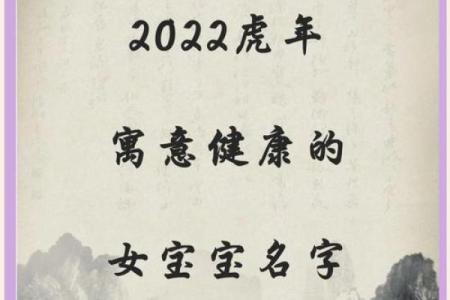 2022虎年
寓意健康的
女宝宝名字